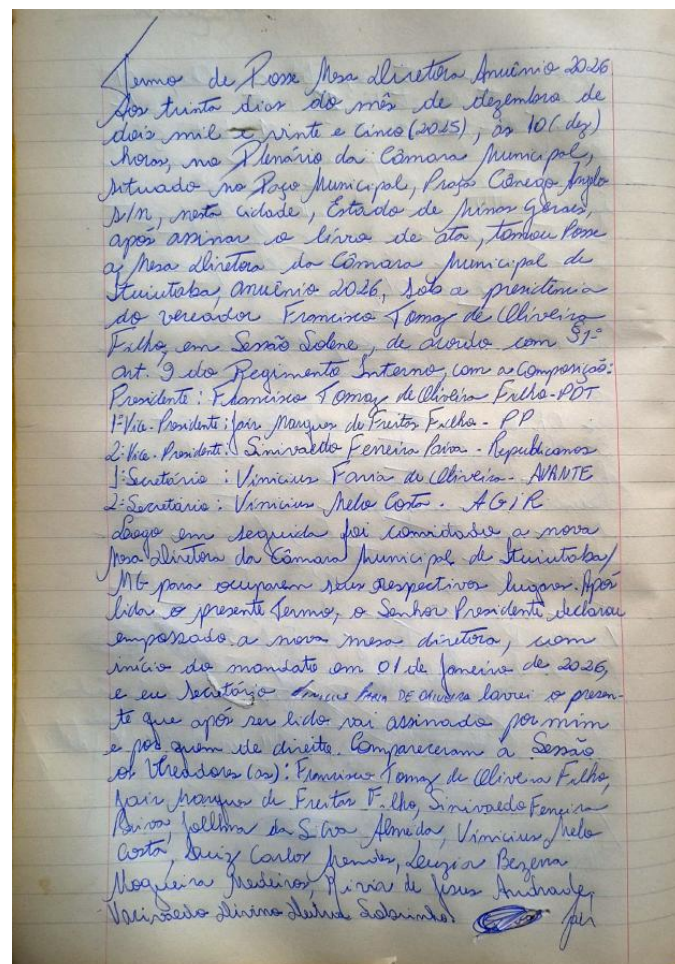 Termo de Posse Mesa Diretora Anuênio 2026
Aos trinta dias do mês de dezembro de
dois mil e vinte e cinco (2025), às 10 (dez)
horas, no Plenário da Câmara Municipal,
situado no Paço Municipal, Praça Cônego Ângelo
s/n, nesta cidade, Estado de Minas Gerais,
após assinar o livro de ata, tomou Posse
a Mesa Diretora da Câmara Municipal de
Ituiutaba, anuênio 2026, sob a presidência
do vereador Francisco Tomaz de Oliveira
Filho, em Sessão Solene, de acordo com §1º
art. 9 do Regimento Interno, com a composição:
Presidente: Francisco Tomaz de Oliveira Filho - PDT
1º Vice-Presidente: Jair Marques de Freitas Filho - PP
2º Vice-Presidente: Sinivaldo Ferreira Paiva - Republicanos
1º Secretário: Vinicius Faria de Oliveira - AVANTE
2º Secretário: Vinicius Melo Costa - AGIR
Logo em seguida foi convidado a nova
Mesa Diretora da Câmara Municipal de Ituiutaba/
MG para ocuparem seus respectivos lugares. Após
lida o presente Termo, o Senhor Presidente declarou
empossado a nova mesa diretora, com
início do mandato em 01 de janeiro de 2026,
e eu secretário Vinicius Faria de Oliveira lavrei o presen-
te que após ser lido vai assinado por mim
e por quem de direito. Compareceram a Sessão
os Vereadores (as): Francisco Tomaz de Oliveira Filho,
Jair Marques de Freitas Filho, Sinivaldo Ferreira
Paiva, da Silva Almeida, Vinicius Melo
Costa, Luiz Carlos Mendes, Luzia Bezerra
Nogueira Medeiros, de Jesus Andrade,
Sobrinho.